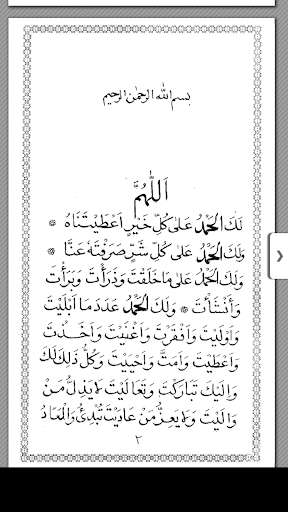 بسم الله الرحمن الرحيم
اَللّٰهُمَّ
لَكَ الْحَمْدُ عَلىٰ كُلِّ خَيْرٍ اَعْطَيْتَنَاهُ *
وَلَكَ الْحَمْدُ عَلىٰ كُلِّ شَرٍّ صَرَفْتَهُ عَنَّا *
وَلَكَ الْحَمْدُ عَلىٰ مَا خَلَقْتَ وَذَرَأْتَ وَبَرَأْتَ
وَأَنْشَأْتَ * وَلَكَ الْحَمْدُ عَدَدَ مَا اَبْلَيْتَ
وَاَوْلَيْتَ وَاَفْقَرْتَ وَاَغْنَيْتَ وَاَخَذْتَ
وَاَعْطَيْتَ وَاَمَتَّ وَاَحْيَيْتَ وَكُلُّ ذٰلِكَ لَكَ
وَاِلَيْكَ تَبَارَكْتَ وَتَعَالَيْتَ لَا يَذِلُّ مَنْ
وَالَيْتَ وَلَا يَعِزُّ مَنْ عَادَيْتَ تُبْدِئُ وَالْمَعَادُ
٢